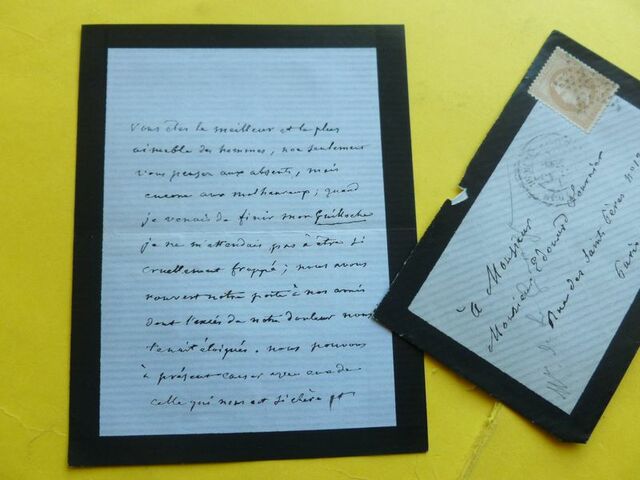 Vous êtes le meilleur et le plus
aimable des hommes, non seulement
vous pensez aux absents, mais
encore aux malheureux; quand
je venais de finir mon
je ne m'attendais pas à être si
cruellement frappé; nous avons
rouvert notre porte à nos amis
dont l'excès de notre douleur nous
tenait éloignés. nous pouvons
à présent causer avec eux de
celle qui nous est si chère
à Monsieur
Monsieur Edouard Fournier
Rue des Saints Pères no
Paris